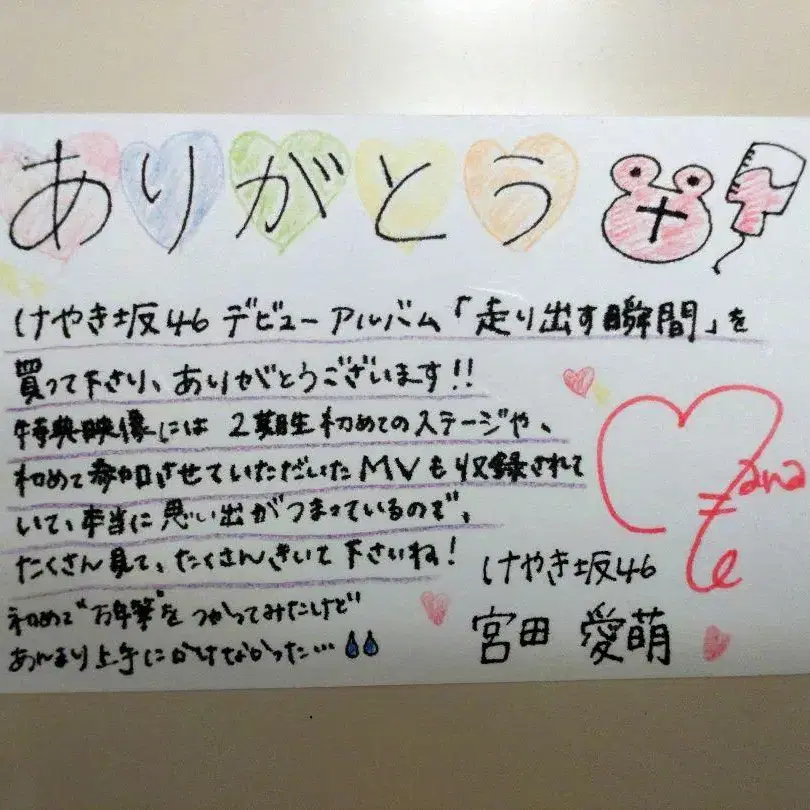 ありがとう
けやき坂46 デビューアルバム「走り出す瞬間」を
買って下さり、ありがとうございます!!
特典映像には 2期生初めてのステージや、
初めて参加させていただいたMVも収録されて
いて、本当に思い出がつまっているので、
たくさん見て、たくさんきいて下さいね!
初めて"万年筆"をつかってみたけど
あんまり上手にかけなかった…
Mana
けやき坂46
宮田 愛萌